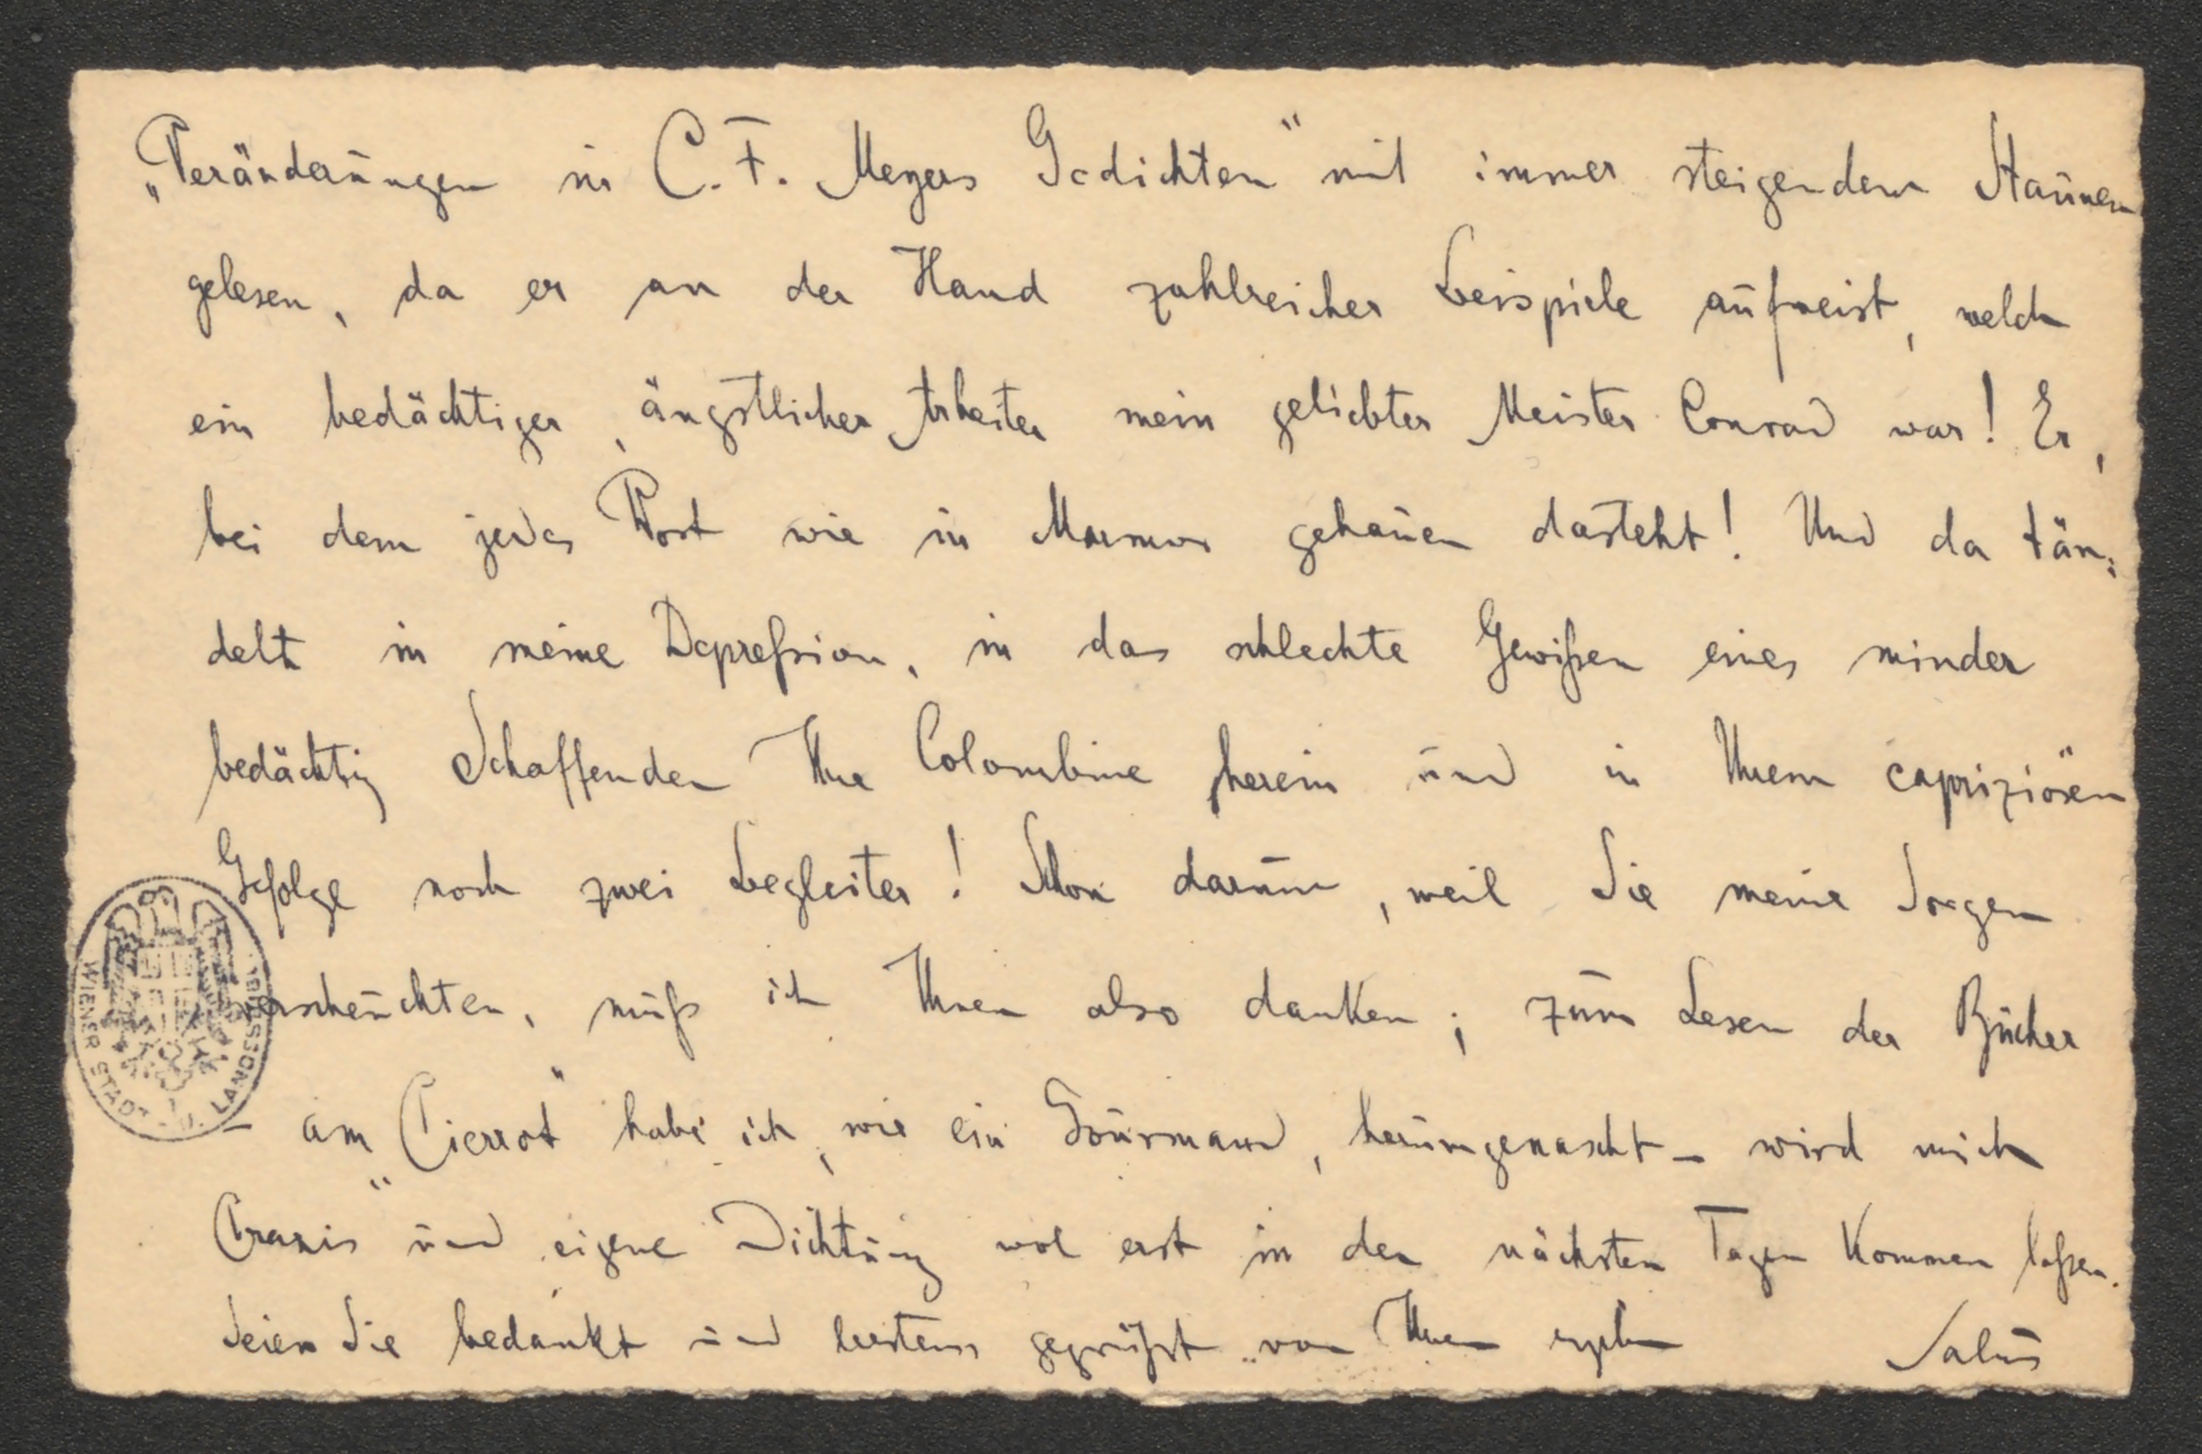 „Veränderungen in C. F. Meyers Gedichten" mit immer steigendem Staunen
gelesen, da er an der Hand zahlreicher Beispiele aufweist, welch
ein bedächtiger, ängstlicher Arbeiter mein geliebter Meister Conrad war! Er,
bei dem jedes Wort wie in Marmor gehauen dasteht! Und da tän:
delt in meine Depreßion, in das schlechte Gewißen eines minder
bedächtig Schaffenden Ihre Colombine herein und in Ihrem capriziösen
Gefolge noch zwei Begleiter! Schon darum, weil Sie meine Sorgen
verscheuchten, muß ich Ihnen also danken; zum Lesen der Bücher
– am „Pierrot" habe ich, wie ein Gourmand, herumgenascht – wird mich
Praxis und eigene Dichtung wol erst in den nächsten Tagen kommen laßen.
Seien Sie bedankt und bestens gegrüßt von Ihrem ergebn
Salus
WIENER STADT- U. LANDESBIBLIOTHEK